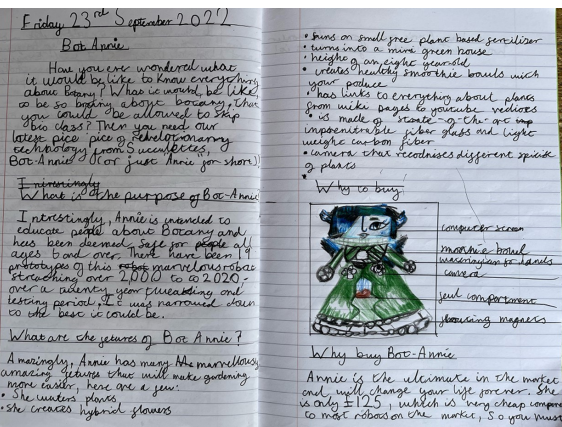 Friday 23rd September 2022
Bot Annie
Have you ever wondered what
it would be like to know everything
about Botany? What is would, be like
to be so brainy about botany, that
you could be allowed to skip
bio class? Then you need our
latest pice of revolutionary
technology from Succulettes,
Bot-Annie! (or just Annie for short)!
Intresingly
What is the purpose of Bot-Annie
Intrestingly, Annie is intended to
educate people about Botany and
has been deemed safe for people all
ages 6 and over. There have been 19
prototypes of this robot marvelous robot
streaching over 2,000 to 2020-
over a twenty year and
testing period. It was narrowed down
to the best it could be.
What are the fetures of Bot Annie?
Amazingly, Annie has many the marvellously
amazing fetures that will make gardening
more easier, here are a few:
• She waters plants
• She creates hybrid flowers
• runs on small free plant based fertiliser
• turns into a mini green house
• height of an eight year old
• creates healthy smoothie bowls with
your produce
• has links to everything about plants
from wiki pages to youtube vedioes
• is made of state-of-the-art imp
impenitrable fiber glass and light
weight carbon fiber
• camera that recodnises different
of plants
Why to buy
computer screen
smoothie bowl
hands
camera
compartment
magnets
Why buy Bot-Annie
Annie is the ultimate in the market
and will change your life forever. She
is only £125, which is very cheap compared
to most robots on the market, So you must